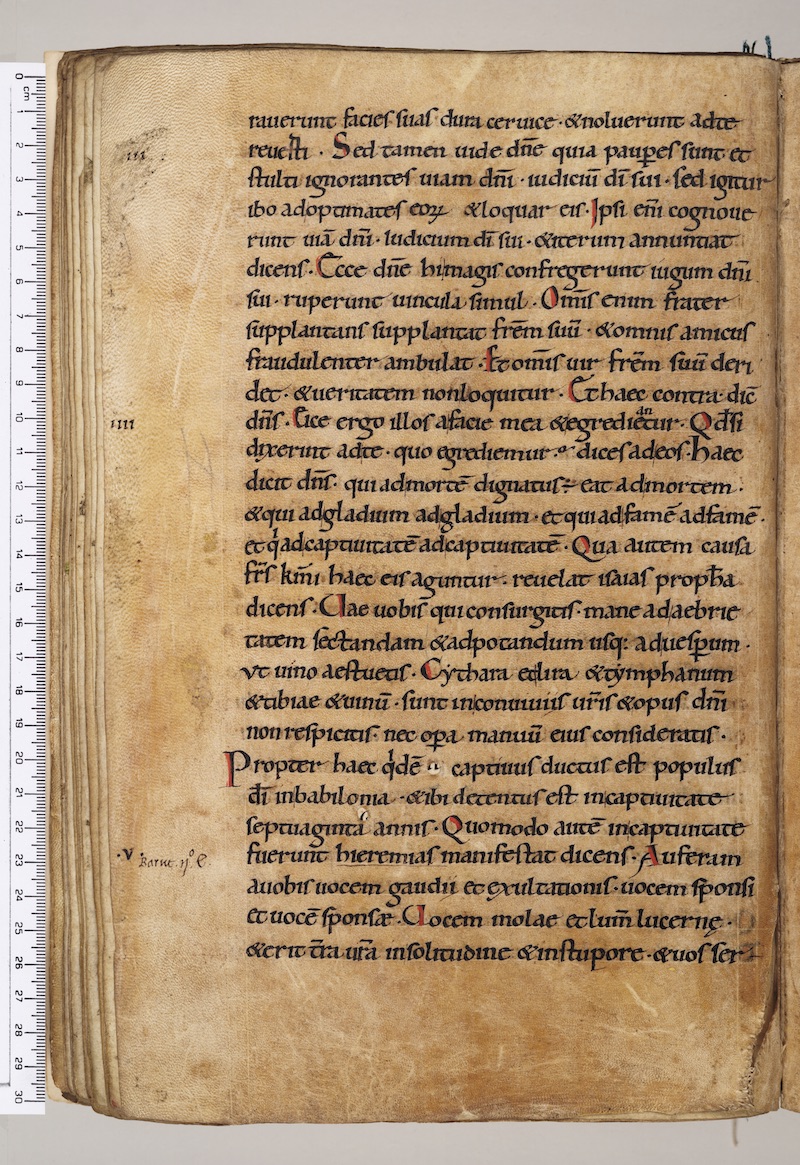 rauerunt facies suas dura ceruice · & noluerunt adte
reuesti · Sed tamen uide dñe quia paup̱es sunt et
stulti ignorantes uiam dñi · iudiciū dī sui · sed igitur
ibo adoptimates eoꝝ & loquar eis · Ipsi eni̅ cognoue
runt uiā dñi · Iudicium dī sui · & iterum annuntiat
dicens · Ecce dñe hi magis confregerunt iugum dñi
sui · ruperunt uincula simul · Omīs enim frater
supplantans supplantat frēm suū · & omnis amicus
fraudulenter ambulat · Et omīs uir frēm suū deri
det · & ueritatem nonloquitur · Et haec contra dic̄
dñs · Eice ergo illos afacie mea & egredientur · Qdsi
dixerint adte · quo egrediemur · dices adeos · haec
dicit dñs · qui admortē dignatus÷ eat admortem ·
& qui adgladium adgladium · et qui adfamē adfamē ·
et q̇ adcaptiuitatē adcaptiuitatē · Qua autem causa
frs̄ km̄i haec eis aguntur · reuelat isaias proph̄a
dicens · Uae uobis qui consurgitis mane adaebrie
tatem sectandam & adpotandum usq: aduesp̱um ·
vt uino aestuetis · Cythara et lira & tymphanum
& tibiae & uinū · sunt inconuiuiis ur̄is & opus dñi
non respicitis nec op̱a manuū eius consideratis ·
Propter haec q̇dē captiuus ductus est populus
dī inbabilonia · & ibi detentus est incaptiuitate
septuaginta annis · Quomodo autē incaptiuitate
·v· fuerunt hieremias manifestat dicens · Auferam
Baruc. ijº c.
auobis uocem gaudii et exultationis · uocem sponsi
et uocē sponsæ · Uocem molae et lum̄ lucernę ·
& erit t̄ra ur̄a insolitudine & instupore · & uos ser
iii
iiii